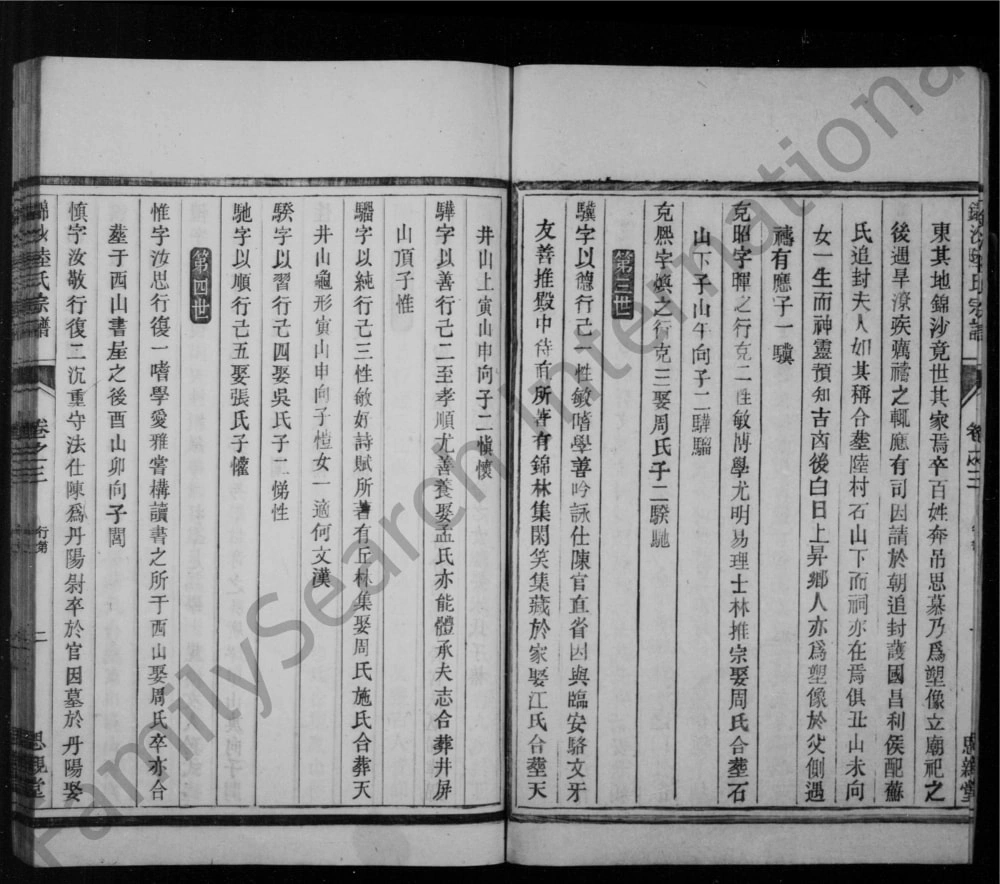 東其地錦沙竟世其家焉卒百姓奔吊思慕乃爲塑像立廟祀之
後遇旱潦疾癘禱之輒應有司因請於朝追封護國昌利侯配蘇
氏追封夫人如其稱合塟陸村石山下而祠亦在焉俱丑山未向
女一生而神靈預知吉凶後白日上昇鄉人亦爲塑像於父側遇
禱有應子一驥
克昭字暉之行克二性敏博學尤明易理士林推宗娶周氏合塟石
山下子山午向子二驊騮
克熈字煥之行克三娶周氏子二騤馳
第三世
驥字以德行己一性敏嗜學善吟詠仕陳官直省因與臨安駱文牙
友善推毀中待自所著有錦林集閑笑集藏於家娶江氏合塟天
井山上寅山申向子二愼懷
驊字以善行己二至孝順尤善養娶孟氏亦能體承夫志合葬井屏
山頂子惟
騮字以純行己三性敏好詩賦所著有丘林集娶周氏施氏合葬天
井山龜形寅山申向子愷女一適何文漢
騤字以習行己四娶吳氏子二悌性
馳字以順行己五娶張氏子懽
第四世
惟字汝思行復一嗜學愛雅嘗構讀書之所于西山娶周氏卒亦合
塟于西山書屋之後酉山卯向子閭
愼字汝敬行復二沉重守法仕陳爲丹陽尉卒於官因墓於丹陽娶
錦沙陸氏宗譜 卷之三 行第 二 思親堂